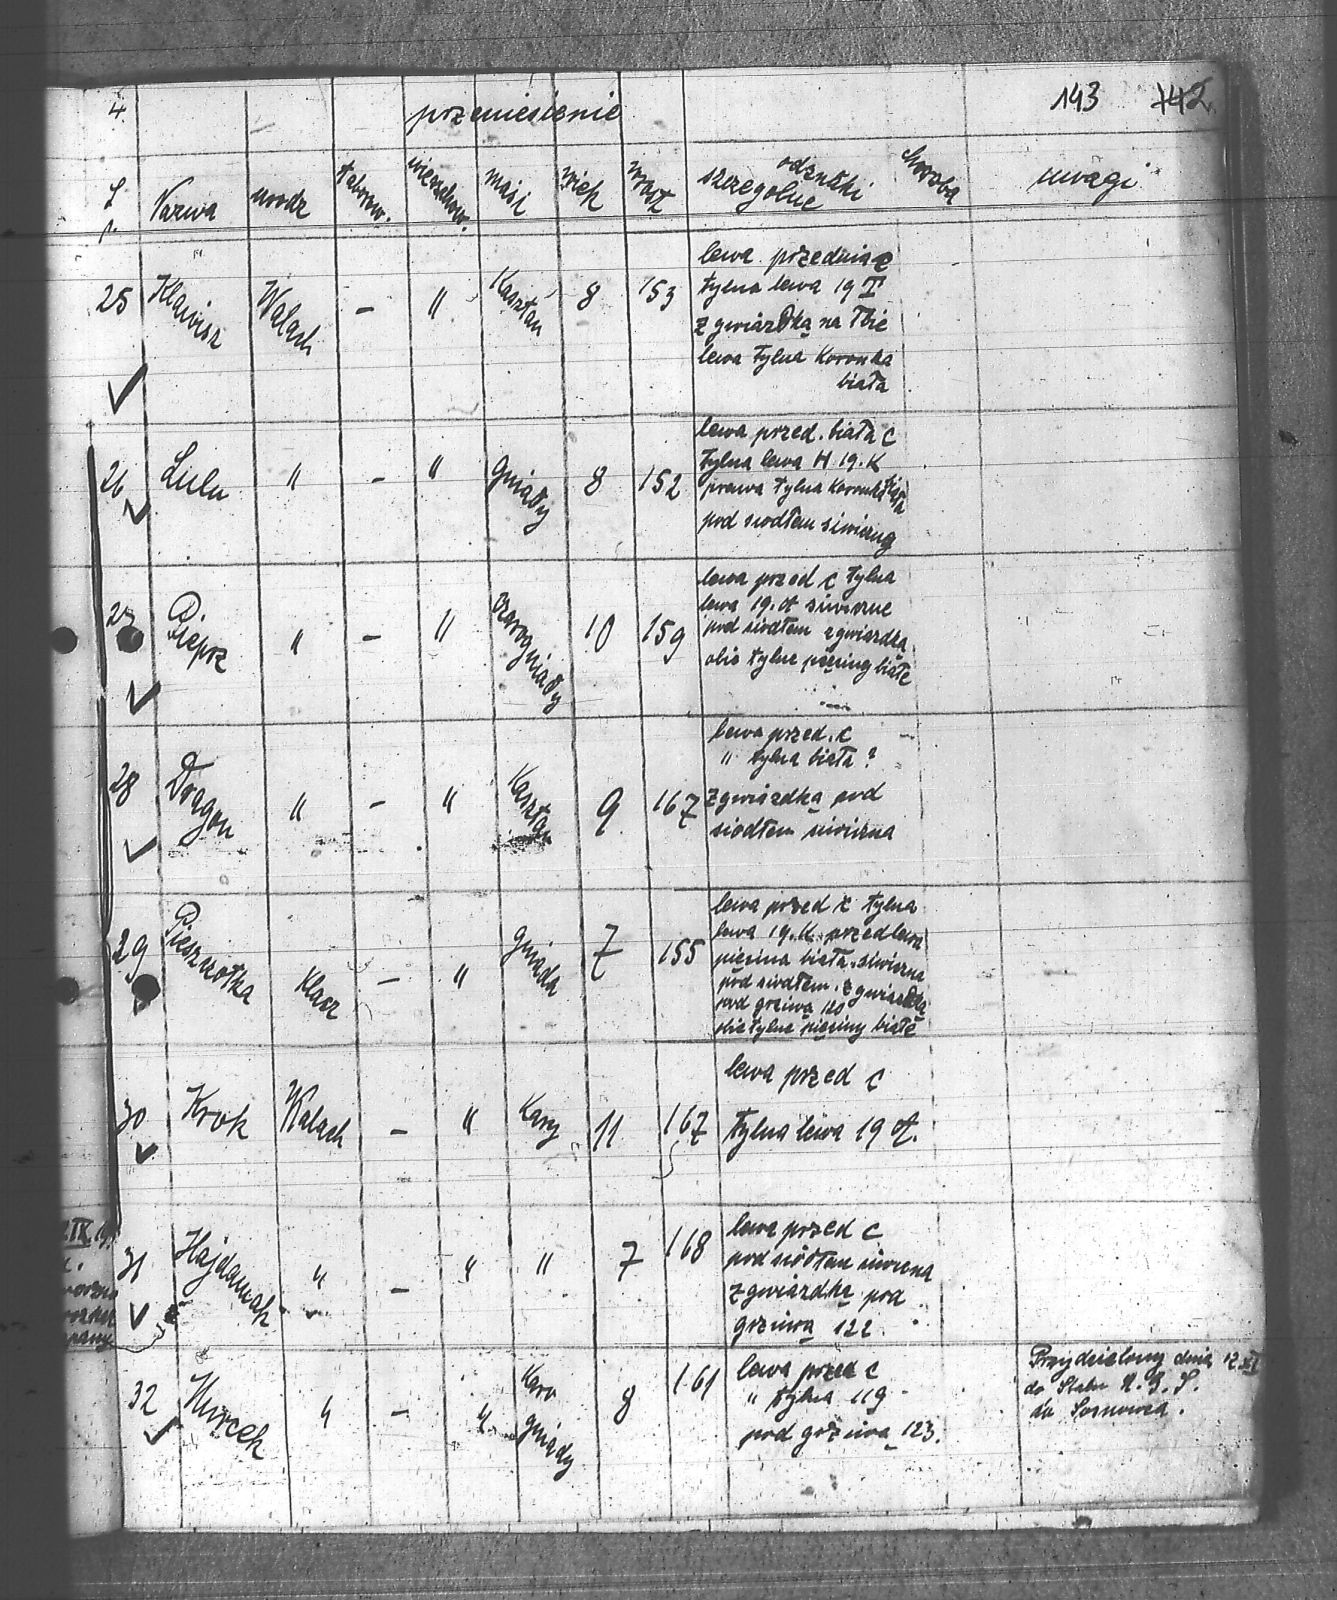 4. przeniesienie 143 142
L. p. Nazwa urodz taborow. wierzchow. maść wiek wzrost odznaki szczegolne choroba uwagi
25 Klawisz Wałach — " Kasztan 8 153 lewa przednia c
tylna lewa 19 I
z gwiazdką na łbie
lewa tylna Koronka
biała
26 Lulu " — " gniady 8 152 lewa przed. biała c
tylna lewa H 19. K
prawa tylna koronka biała
pod siodłem siwizny
27 Pieprz " — " skarogniady 10 159 lewa przed c tylna
lewa 19. siwizne
pod siodłem z gwiazdką
obie tylne pęciny białe
28 Dragon " — " Kasztan 9 167 lewa przed. c
" tylna biała ?
z gwiazdką pod
siodłem siwizna
29 Pieszczotka Klacz — " gniada 7 155 lewa przed c tylna
lewa 19. K. przed lewa
pięcina biała. siwizna
pod siodłem. z gwiazdką
pod grzywą 120
obie tylne pięciny białe
30 Krok Wałach — " Kary 11 167 lewa przed c
tylna lewa 19
IX. 19
31 Hajdamak " — " " 7 168 lewa przed c
pod siodłem siwizna
z gwiazdką pod
grzywą 122.
32 Murcek " — " Karo gniady 8 161 lewa przed c
" tylna 119
pod grzywą 123.
Przydzielony dnia 17 XI
do Sztabu N. B. S.
do Sosnowca.